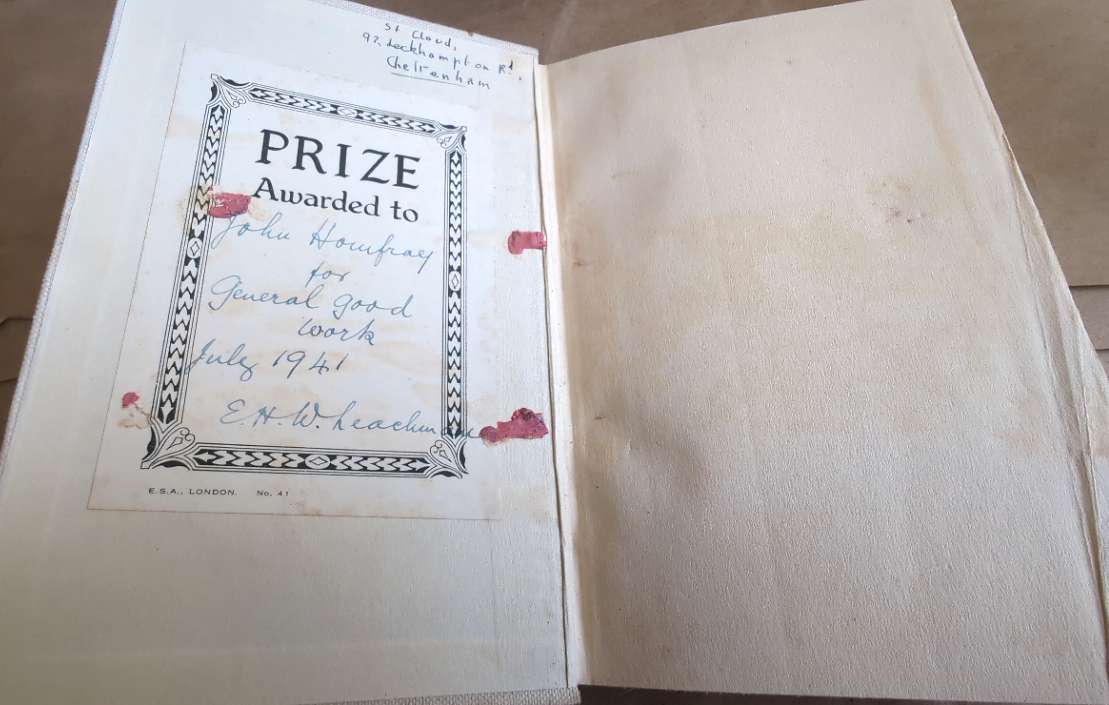 St Cloud,
92, Leckhampton Rd,
Cheltenham
PRIZE
Awarded to
John Homfray
for
General good
work
July 1941
E.H.W. Leachman
E.S.A., LONDON. No. 41